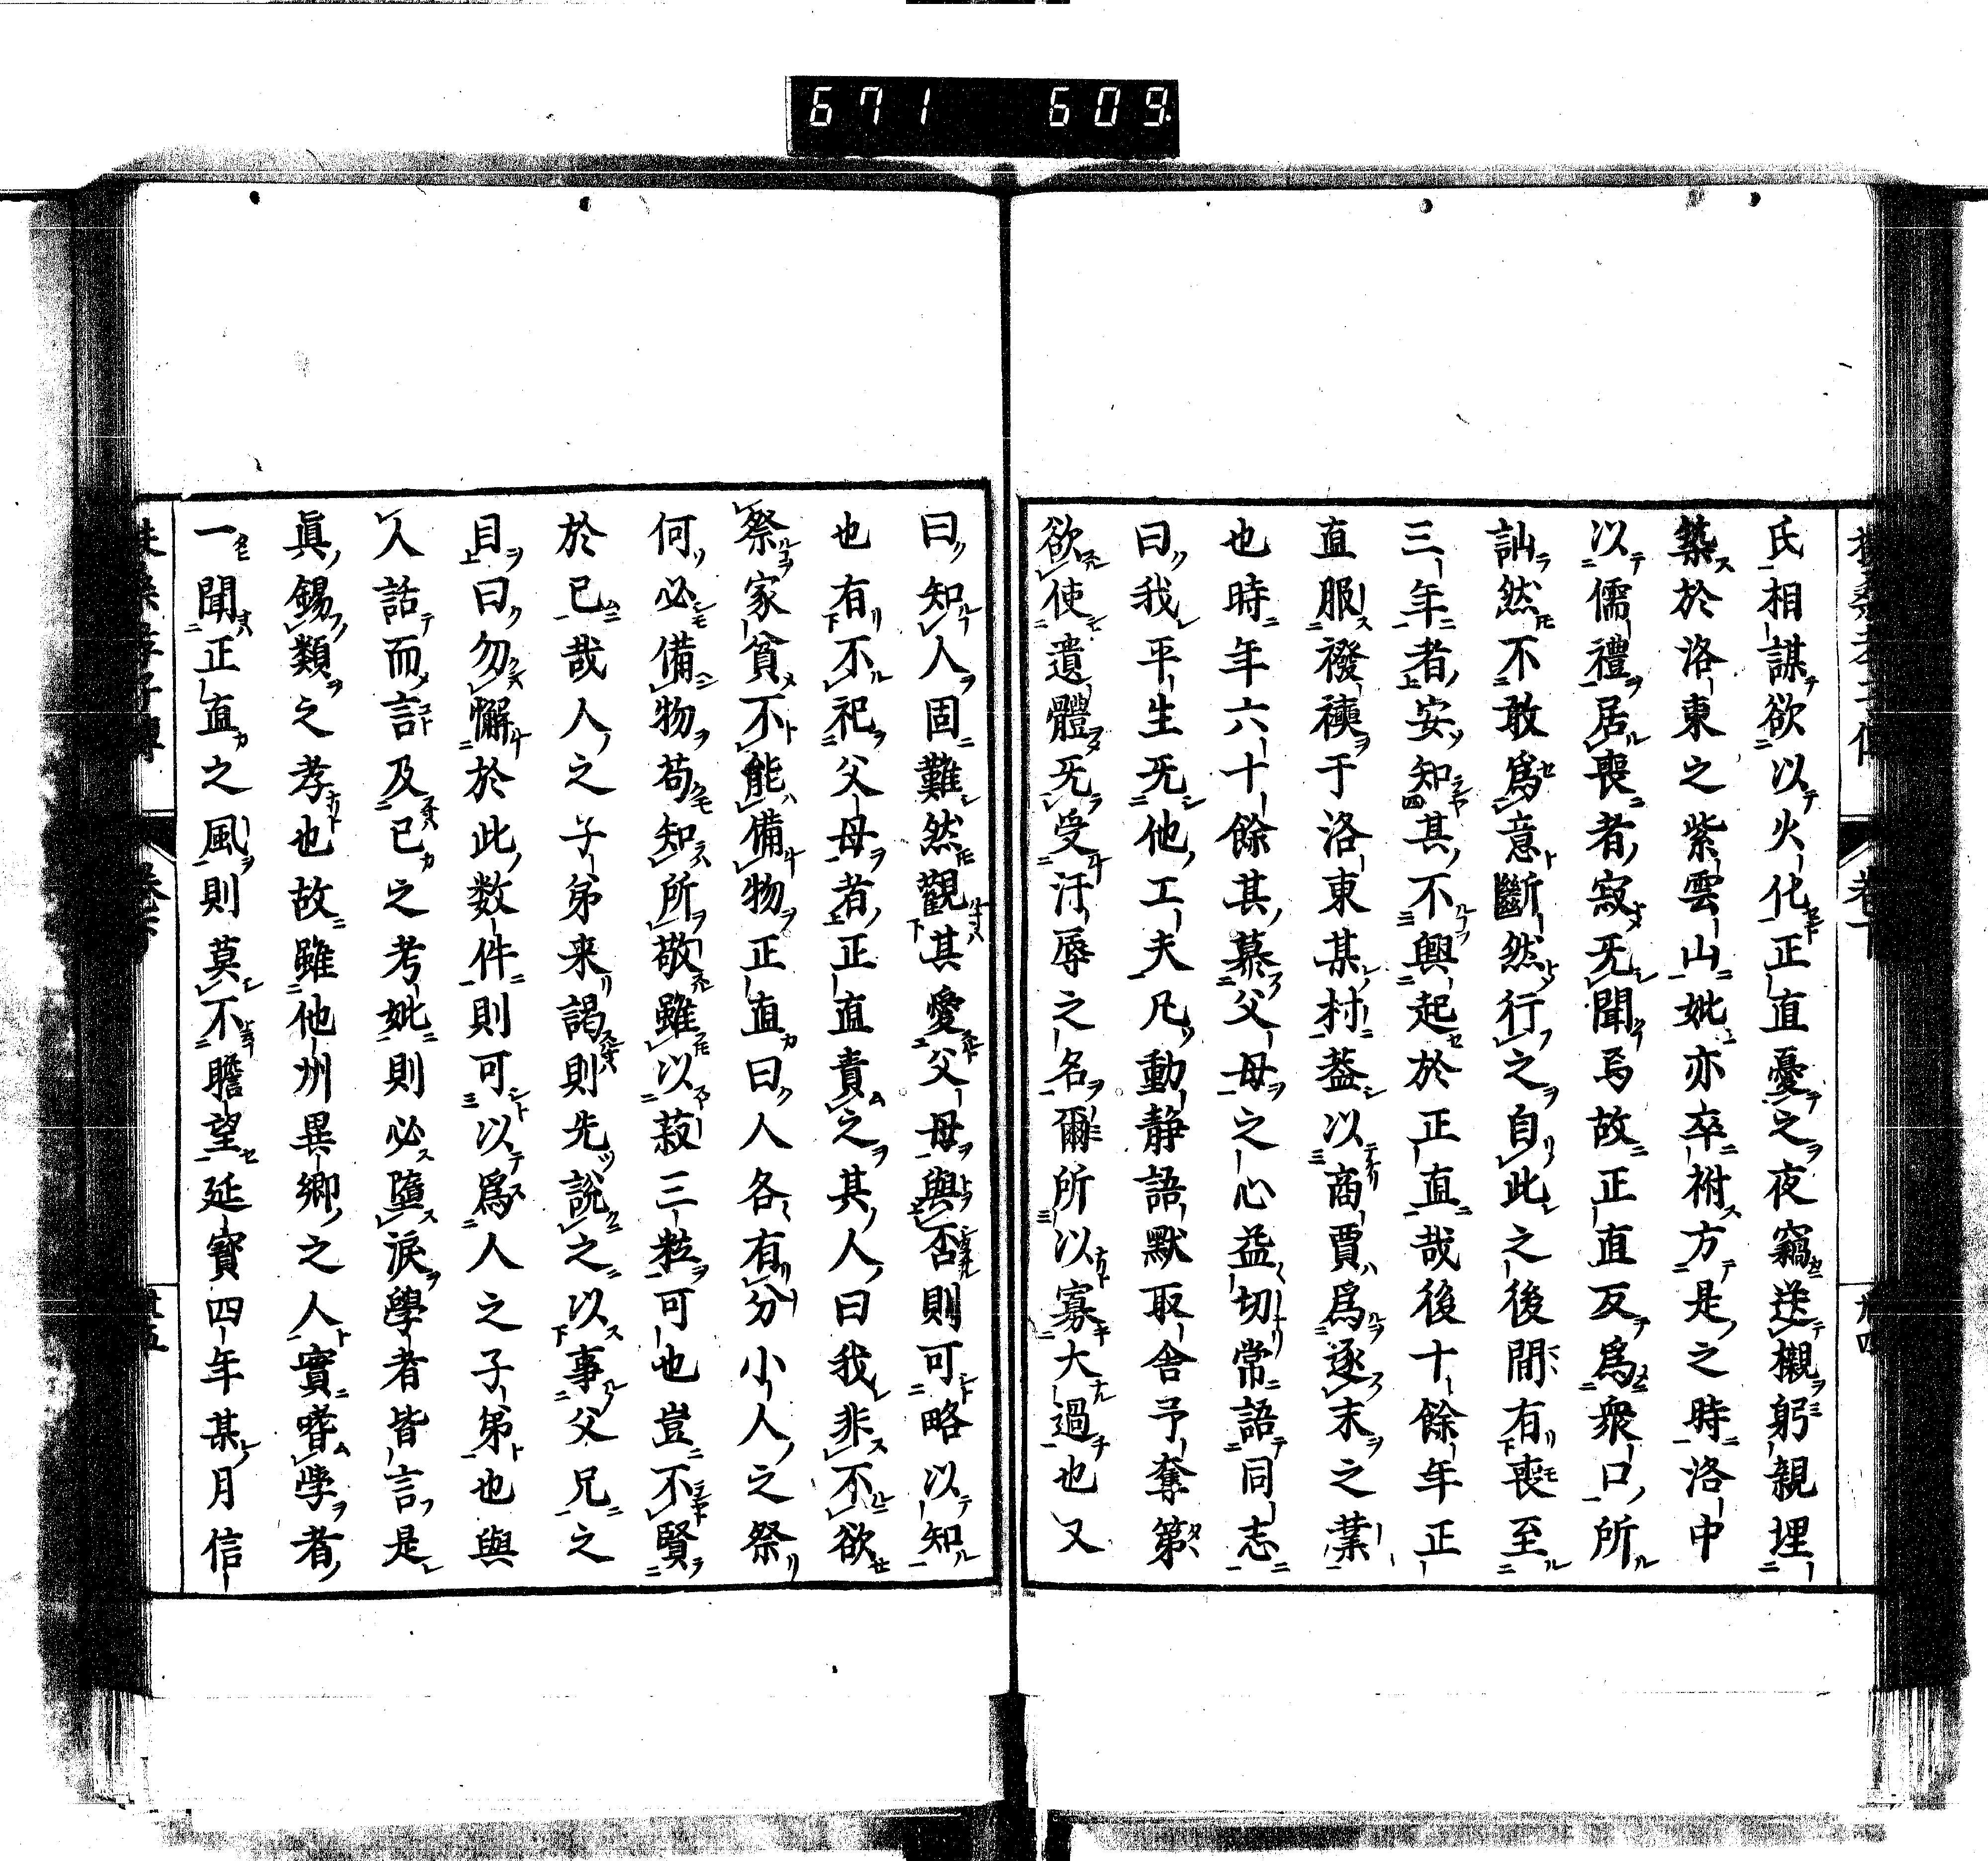 671 609
氏相謀欲以火化正直憂之夜竊送櫬躬親埋
築於洛東之紫雲山妣亦卒祔方是之時洛中
以儒禮居喪者寂无聞焉故正直反爲衆口所
訕然不敢爲意斷然行之自此之後間有喪至
三年者安知其不興起於正直哉後十餘年正
直服襏襫于洛東某村蓋以商賈爲逐末之業
也時年六十餘其慕父母之心益切常語同志
曰我平生无他工夫凡動静語默取舍予奪第
欲使遺體无受汙辱之名爾所以寡大過也又
曰知人固難然觀其愛父母與否則可略以知
也有不祀父母者正直責之其人曰我非不欲
祭家貧不能備物正直曰人各有分小人之祭
何必備物苟知所敬雖以菽三粒可也豈不賢
於已哉人之子弟来謁則先說之以事父兄之
目曰勿懈於此数件則可以爲人之子弟也與
人話而言及已之考妣則必墮淚學者皆言是
眞錫類之孝也故雖他州異鄉之人實嗜學者
一聞正直之風則莫不瞻望延寳四年某月信